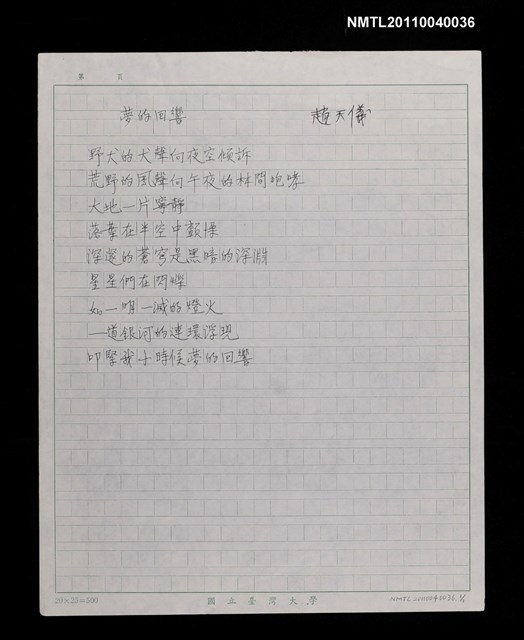 NMTL20110040036
第 頁
夢的回響 趙天儀
野犬的犬聲向夜空傾訴
荒野的風聲向午夜的林間咆哮
大地一片寧靜
落葉在半空中顫慄
深邃的蒼穹是黑暗的深淵
星星們在閃爍
如一明一滅的燈火
一道銀河的連環浮現
叩緊我小時候夢的回響
20×25=500
國立臺灣大學
NMTL20110040036, 1/1